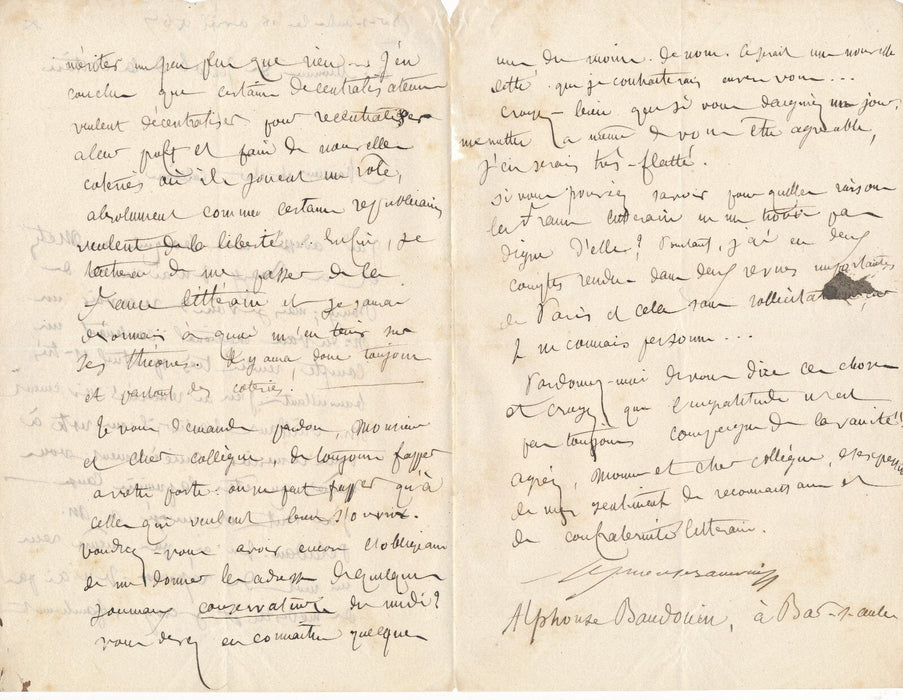 mériter un peu plus que rien... J'en
conclus que certains decentralisateurs
veulent decentraliser pour recentraliser
a leur profit et faire de nouvelles
coteries où ils jouent un rôle,
absolument comme certains republicains
veulent de la liberté. Enfin, je
tacherai de me passer de la
France littéraire et je saurai
desormais à quoi m'en tenir sur
ses théories. Il y aura donc toujours
et partout des coteries.
Je vous demande pardon, Monsieur
et cher collègue, de toujours frapper
a votre porte: on ne peut frapper qu'à
celles qui veulent bien s'ouvrir.
voudrez-vous avoir encore l'obligeance
de me donner les adresses de quelques
journaux conservateurs du midi?
vous devez en connaitre quelques
uns du moins de nom. Ce serait une nouvelle
dette que je contracterais envers vous...
Croyez-bien que si vous daigniez un jour,
me mettre a même de vous être agreable,
j'en serais très-flatté.
si vous pouviez savoir pour quelles raisons
la France littéraire ne me trouve pas
digne d'elle? Pourtant, j'ai eu deux
comptes rendus dans deux revues importantes
de Paris et cela sans sollicitations, car
je ne connais personne...
Pardonnez-moi de vous dire ces choses
et croyez que l'ingratitude n'est
pas toujours compagne de la vanité!!
agréez, Monsieur et cher collègue, l'expression
de mes sentiments de reconnaissance et
de confraternité littéraire.
Alphonse Baudouin, à Bar-s-aube